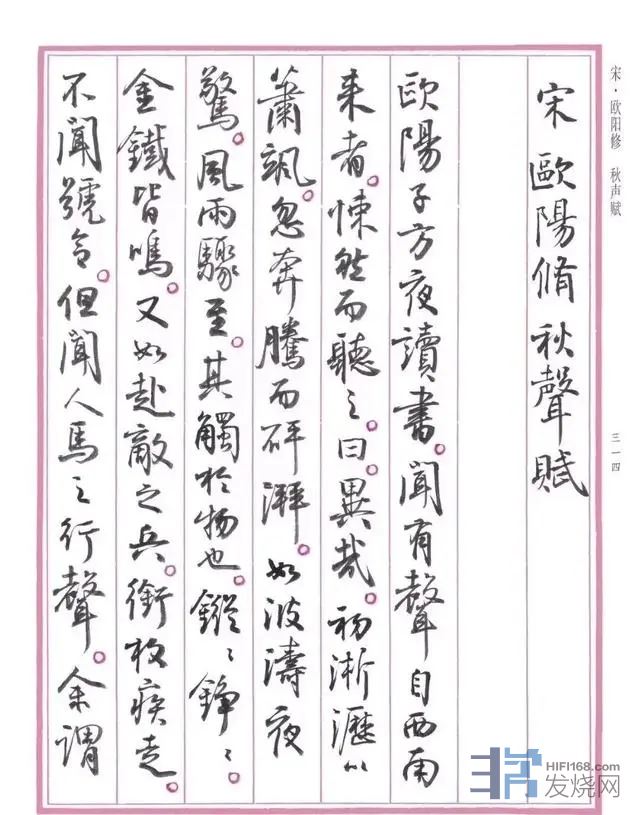 宋·欧阳修 秋声赋
三一四
宋 歐陽脩 秋聲賦
歐陽子方夜讀書。聞有聲自西南
来者。悚然而聽之。曰。異哉。初淅瀝以
蕭颯。忽奔騰而砰湃。如波濤夜
驚。風雨驟至。其觸於物也。鏦〻錚〻。
金鐵皆鳴。又如赴敵之兵。銜枚疾走。
不聞號令。但聞人馬之行聲。余謂
HIFI168.com
发烧网